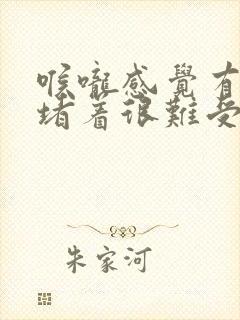 喉嚨感覺有
堵着很難受
朱家河